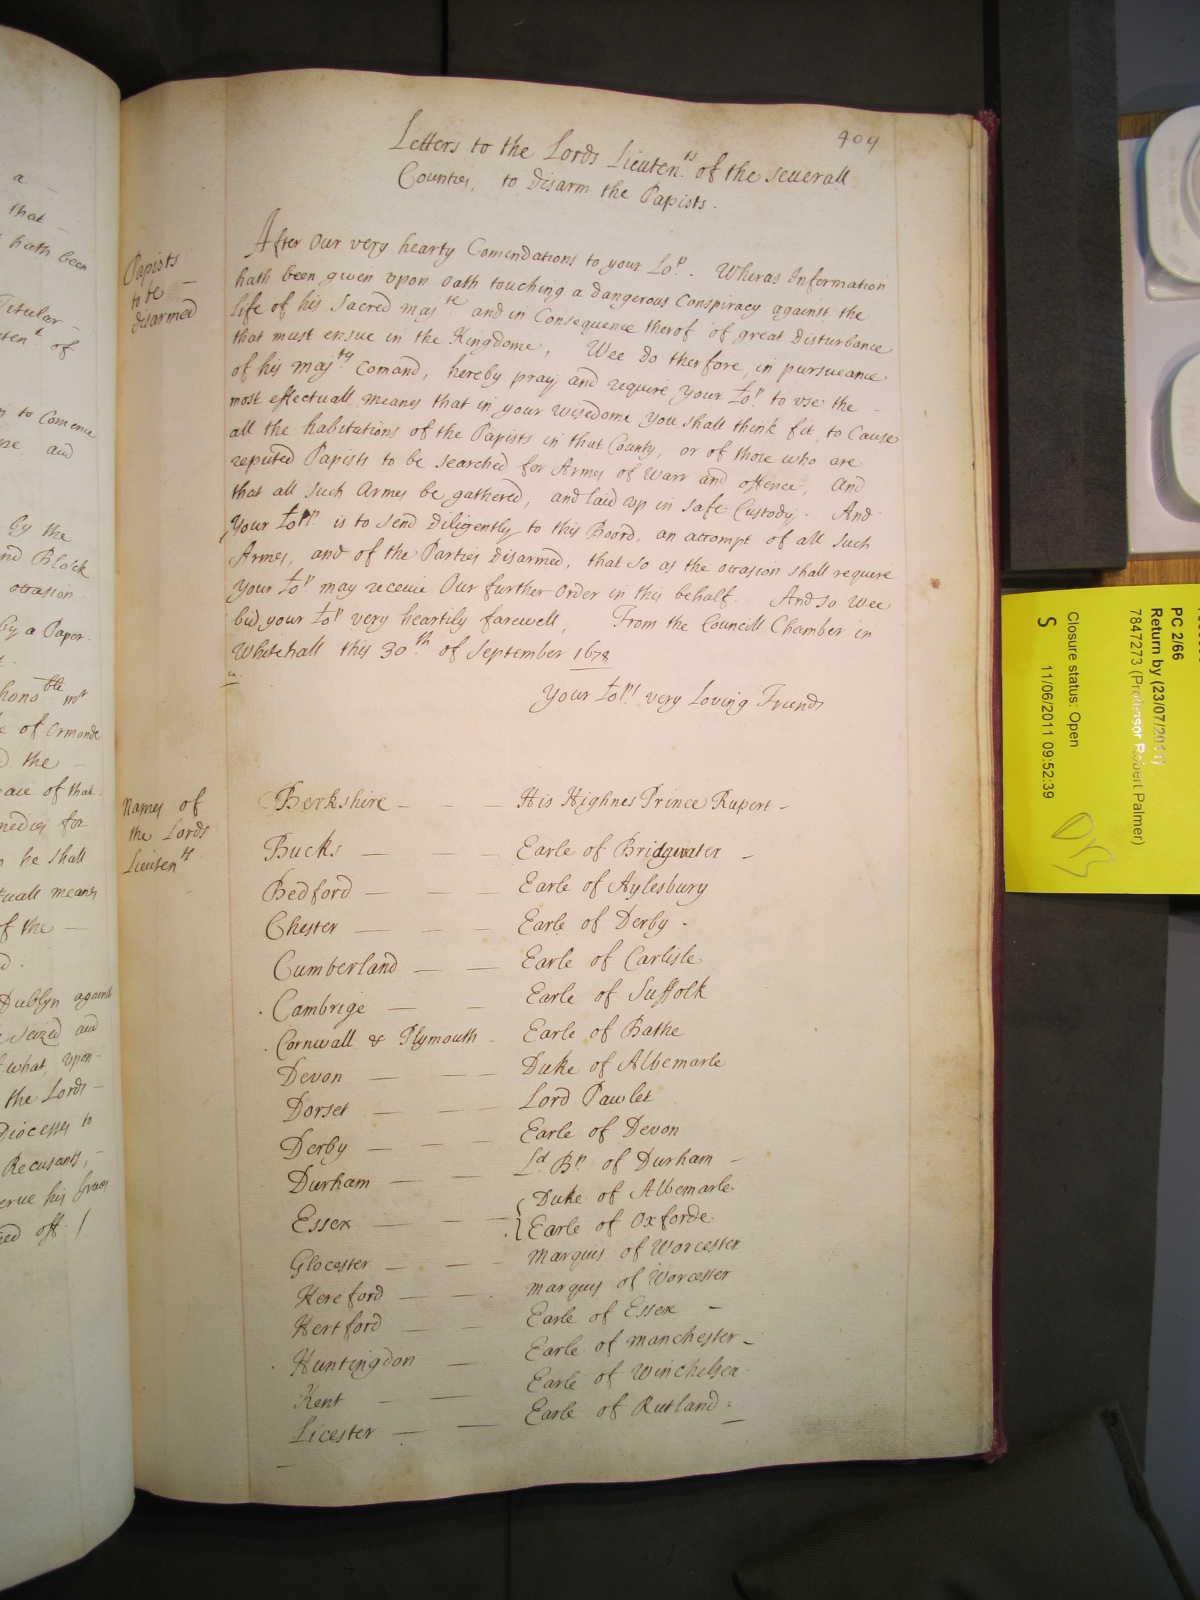 a
that
hath been
Titular
of
to Comence
and
by the
and Black
occasion
by a Paper
hono:ble mr
of Ormonde
the
ace of that
medies for
he shall
tuall means
of the
Dublyn against
seized and
what, upon
the Lords
Diocesses to
Recusants,
off
409
Letters to the Lords Lieuten:ts of the severall
Counties, to disarm the Papists.
Papists
to be
disarmed
After Our very hearty Comendations to your Lo:p. Wheras Information
hath been given upon oath touching a dangerous Conspiracy against the
life of his Sacred majte and in Consequence therof of great disturbance
that must ensue in the Kingdome, Wee do therfore, in pursueance
of his majtys Comand, hereby pray and require your Lo:p to use the
most effectuall means that in your wisedome you shall think fit, to Cause
all the habitations of the Papists in that County, or of those who are
reputed Papists to be searched for Armes of Warr and offence, And
that all such Armes be gathered, and laid up in safe Custody. And
your Lo:pp is to send diligently to this Board, an accompt of all such
Armes, and of the Parties disarmed, that so as the occasion shall require
your Lo:p may receive Our further Order in this behalf. And so Wee
bid your Lo:p very heartily farewell, From the Councill Chamber in
Whitehall this 30th of September 1678
Your Lo:ps very Loving Friends
Names of
the Lords
Lieutents
Berkshire — — His Highnes Prince Rupert –
Bucks — — Earle of Bridgwater –
Bedford — — Earle of Aylesbury
Chester — — — Earle of Derby .
Cumberland — — Earle of Carlisle
Cambrige — — Earle of Suffolk
Cornwall & Plymouth – Earle of Bathe
Devon — — — Duke of Albemarle
Dorset — — — Lord Pawlet
Derby — — — Earle of Devon
Durham — — — Ld. Bp. of Durham –
Essex — — — { Duke of Albemarle
Earle of Oxforde
Glocester — — — Marquis of Worcester
Hereford — — Marquis of Worcester
Hertford — — Earle of Essex –
Huntingdon — Earle of Manchester –
Kent — — Earle of Winchelsea
Licester — — Earle of Rutland:
PC 2/66
Return by (23/07/2011)
7847273 (Professor Robert Palmer)
Closure status: Open
S 11/06/2011 09:52:39